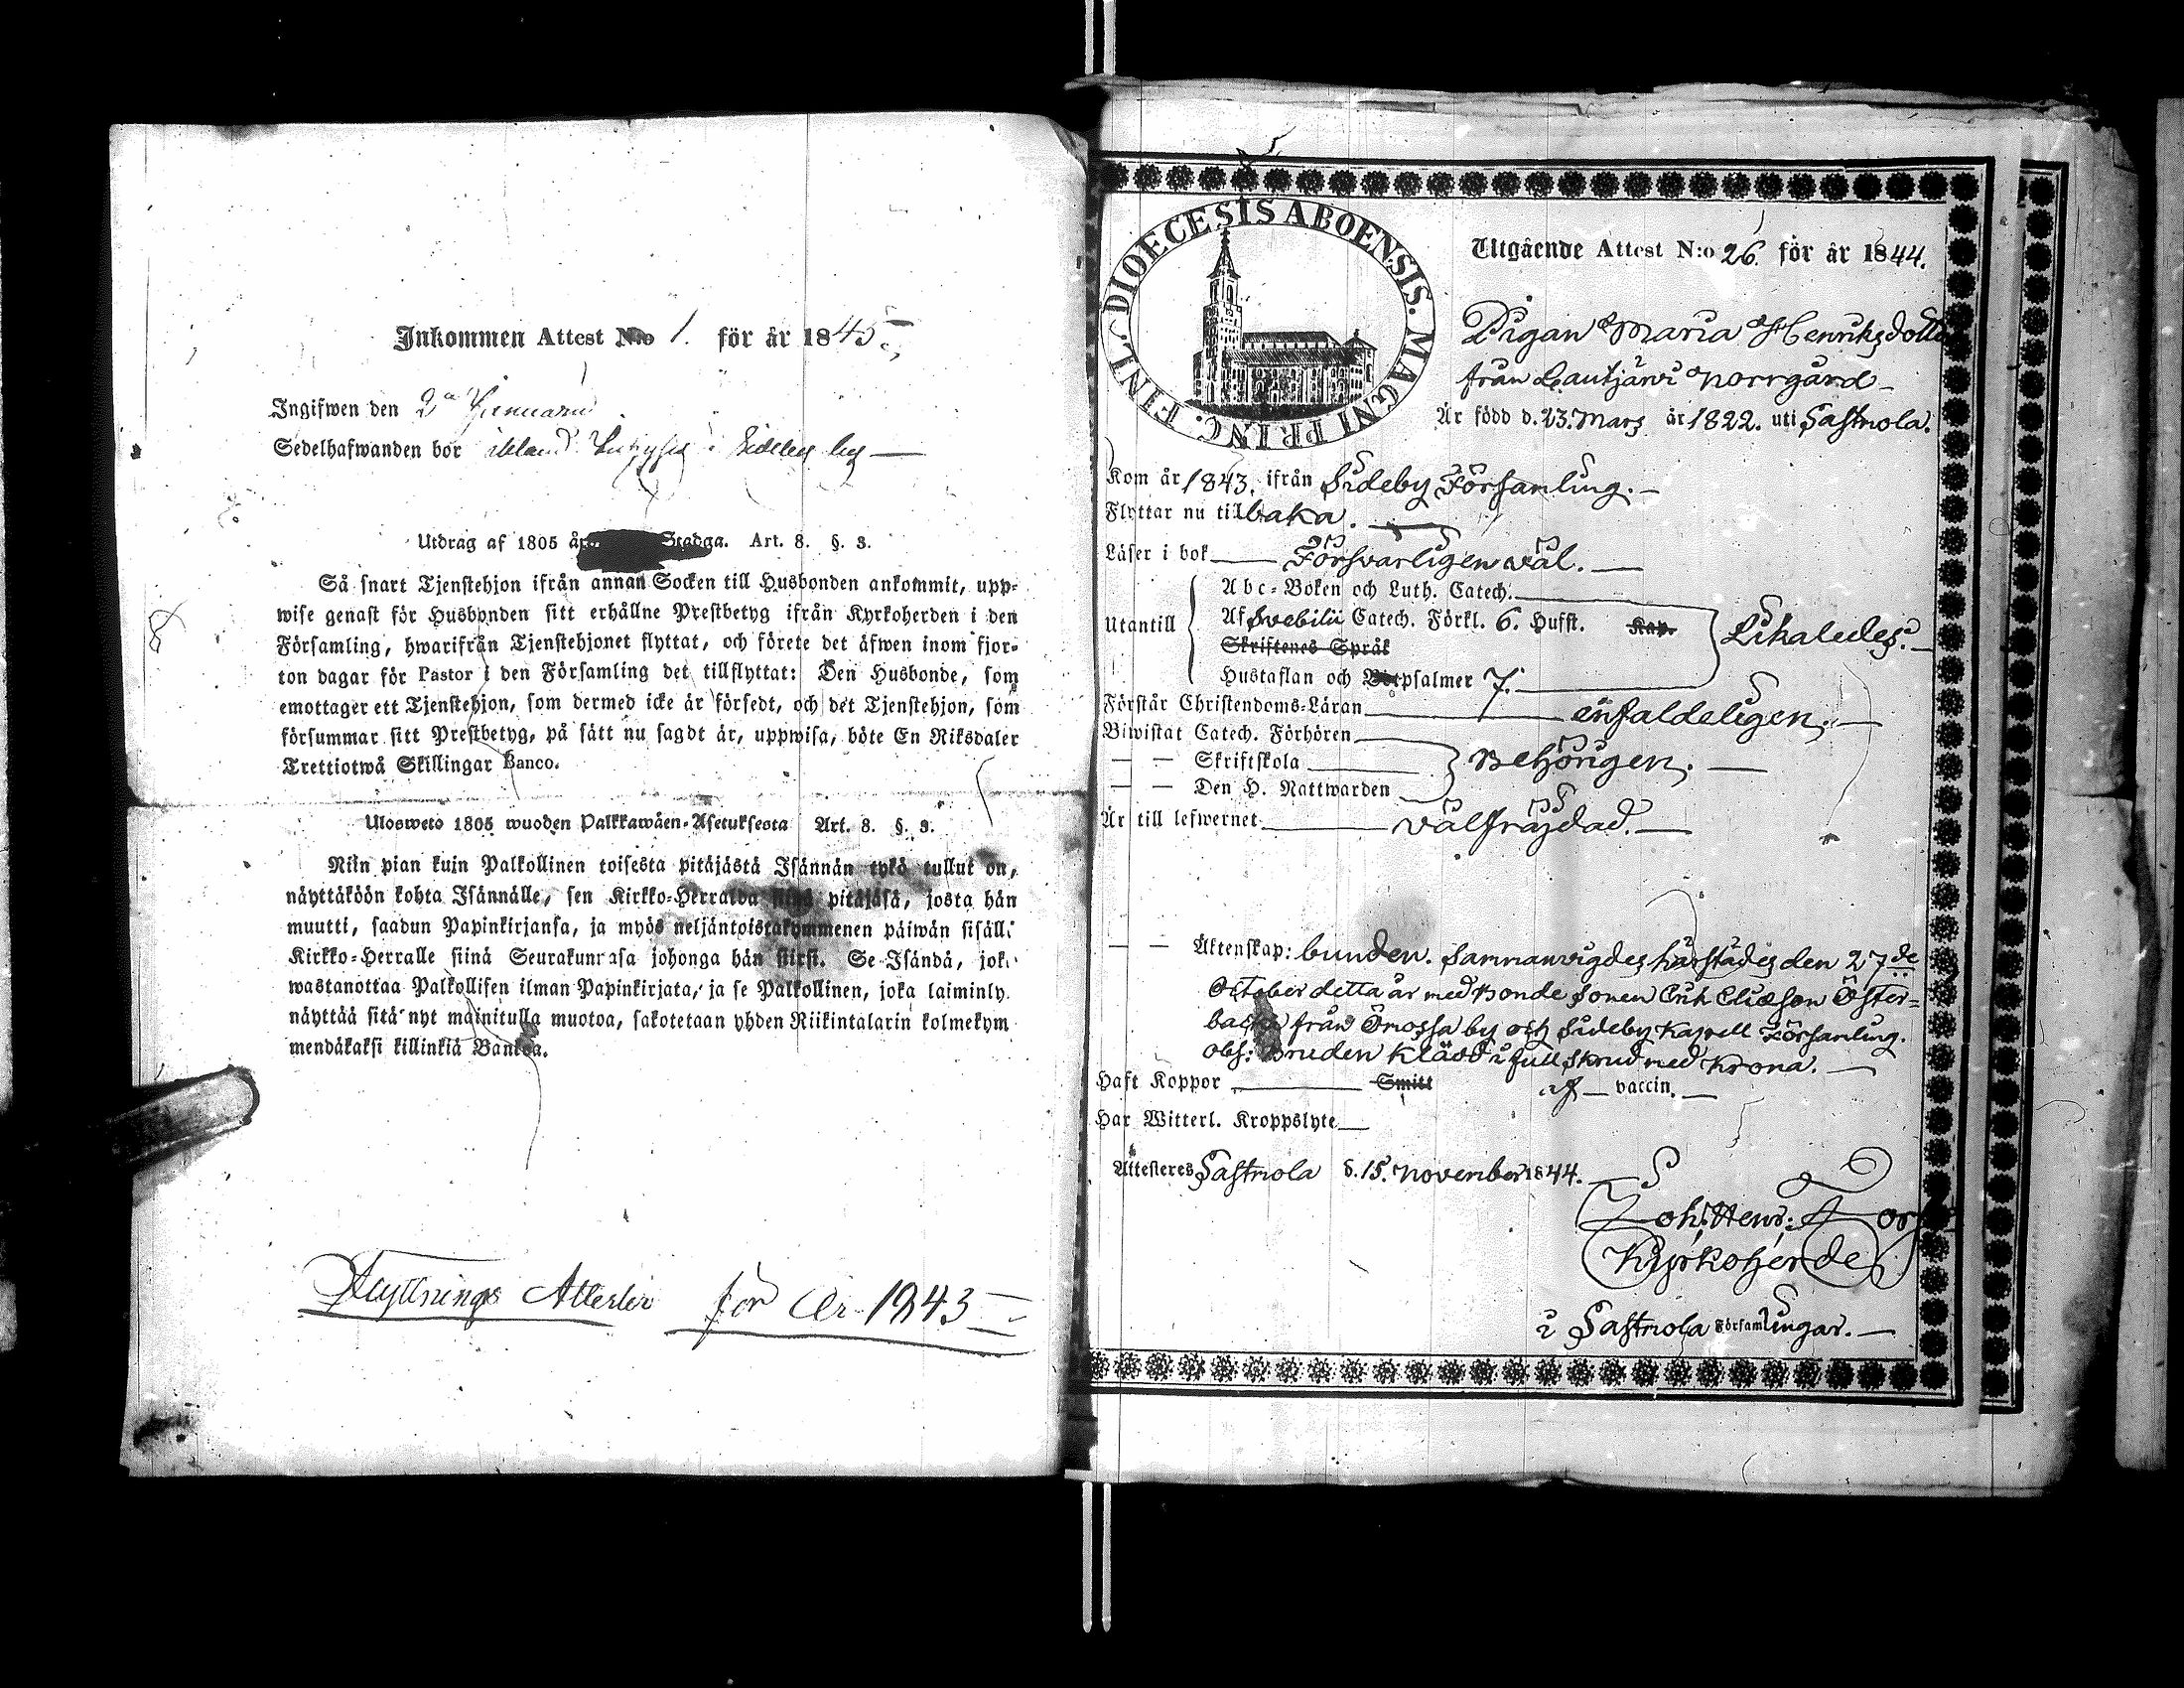 Inkommen Attest N:o 1. för år 1845.
Ingifwen den 2a Januarii
Sedelhafwanden bor ibland i Sideby by
Utdrag af 1805 års Stadga. Art. 8. §. 3.
Så snart Tjenstehjon ifrån annan Socken till Husbonden ankommit, upp-
wise genast för Husbonden sitt erhållne Prestbetyg ifrån Kyrkoherden i den
Församling, hwarifrån Tjenstehjonet flyttat, och förete det äfwen inom fjor-
ton dagar för Pastor i den Församling det tillflyttat: Den Husbonde, som
emottager ett Tjenstehjon, som dermed icke är försedt, och det Tjenstehjon, som
försummar sitt Prestbetyg, på sätt nu sagdt är, uppwisa, böte En Riksdaler
Trettiotwå Skillingar Banco.
Ulosweto 1805 wuoden Palkkawäen-Asetuksesta Art. 8. §. 3.
Niin pian kuin Palkollinen toisesta pitäjästä Isännän tykö tullut on,
näyttäköön kohta Isännälle, sen Kirkko-Herralda siinä pitäjäsä, josta hän
muutti, saadun Papinkirjansa, ja myös neljäntoistakymmenen päiwän sisäll.
Kirkko-Herralle siinä Seurakunnasa johonga hän siirsi. Se Isändä, jok.
wastanottaa Palkollisen ilman Papinkirjata, ja se Palkollinen, joka laiminly.
näyttää sitä nyt mainitulla muotoa, sakotetaan yhden Riikintalarin kolmekym
mendäkaksi killinkiä Bankoa.
Flyttnings Attester för år 1843
DIOECESIS ABOENSIS. MAGNI PRINC. FINL.
Utgående Attest N:o 26. för år 1844.
Pigan Maria Henriksdotter
från Lautjärvi Norrgård
Är född d. 23. Mars år 1822. uti Sastmola.
Kom år 1843. ifrån Sideby Församling.
Flyttar nu tillbaka.
Läser i bok Försvarligen väl.
Utantill
Abc-Boken och Luth. Catech.
Af Svebilii Catech. Förkl. 6. Hufst. Kap.
Skriftenes Språk
Hustaflan och Botpsalmer 7.
Likaledes.
Förstår Christendoms-Läran enfaldeligen.
Biwistat Catech. Förhören
— — Skriftskola
— — Den H. Nattwarden
Behörigen.
Är till lefwernet välfräjdad.
— — Äktenskap: bunden. Sammanvigdes härstädes den 27de
October detta år med Bonde Sonen Erik Eliæson Öster-
backa från Ömossa by och Sideby Kapell Församling.
Obs: Bruden klädd i full skrud med Krona.
Haft Koppor Smitt af vaccin.
Har Witterl. Kroppslyte
Attesteres Sastmola d. 15. November 1844.
Joh: Henr:
Kyrkoherde
i Sastmola Församlingar.